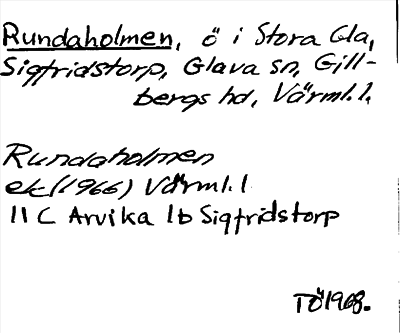 Rundaholmen, ö i Stora Gla,
Sigfridstorp, Glava sn, Gill-
bergs hd, Värml.l.
Rundaholmen
ek (1966) Värml.l
11 C Arvika 1b Sigfridstorp
TÖ 1968.